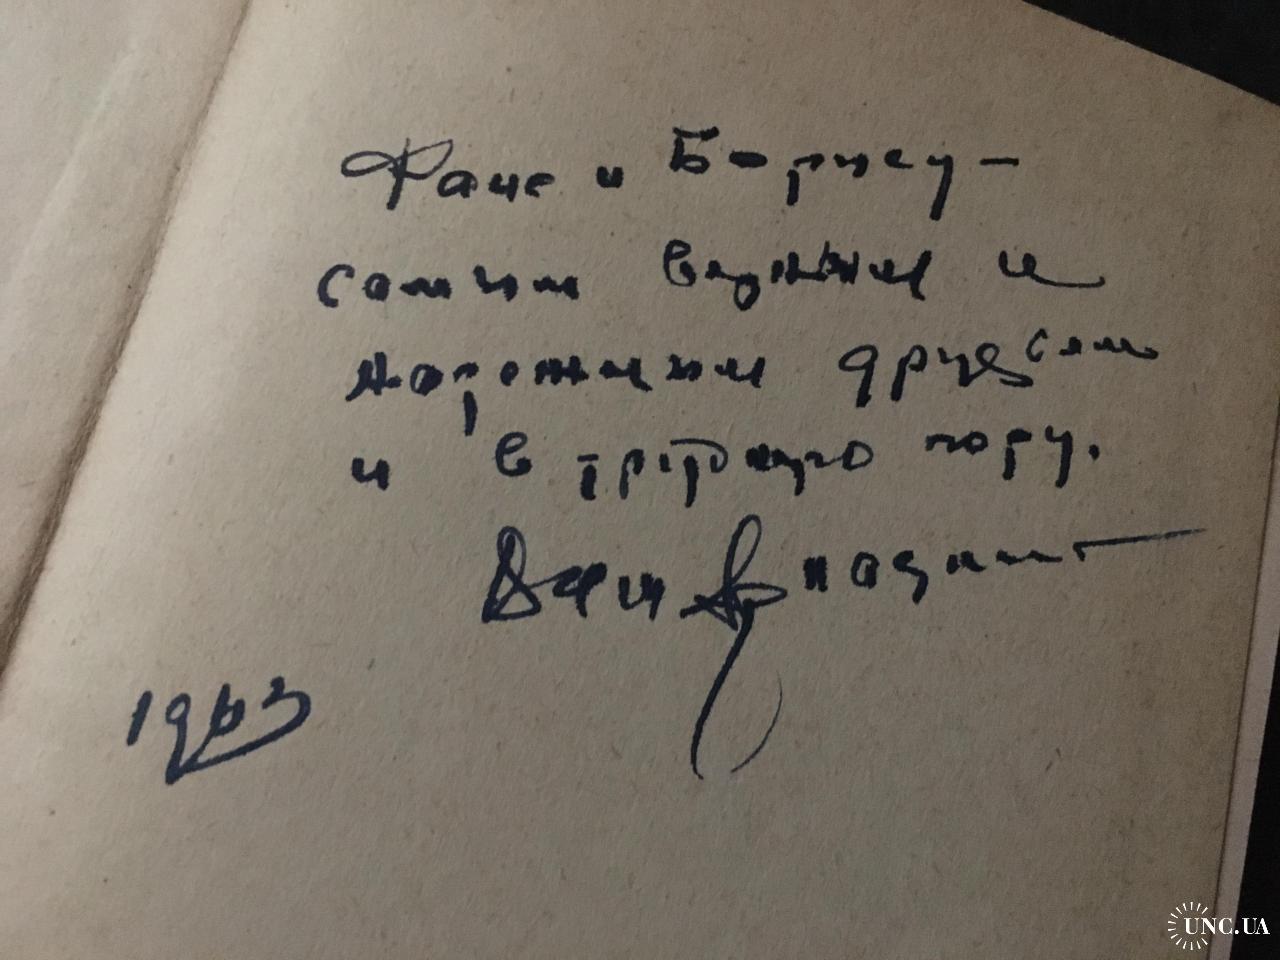 Фане и Борису –
самым верным и
надежным друзьям
и в трудную пору.
1963
UNC.UA